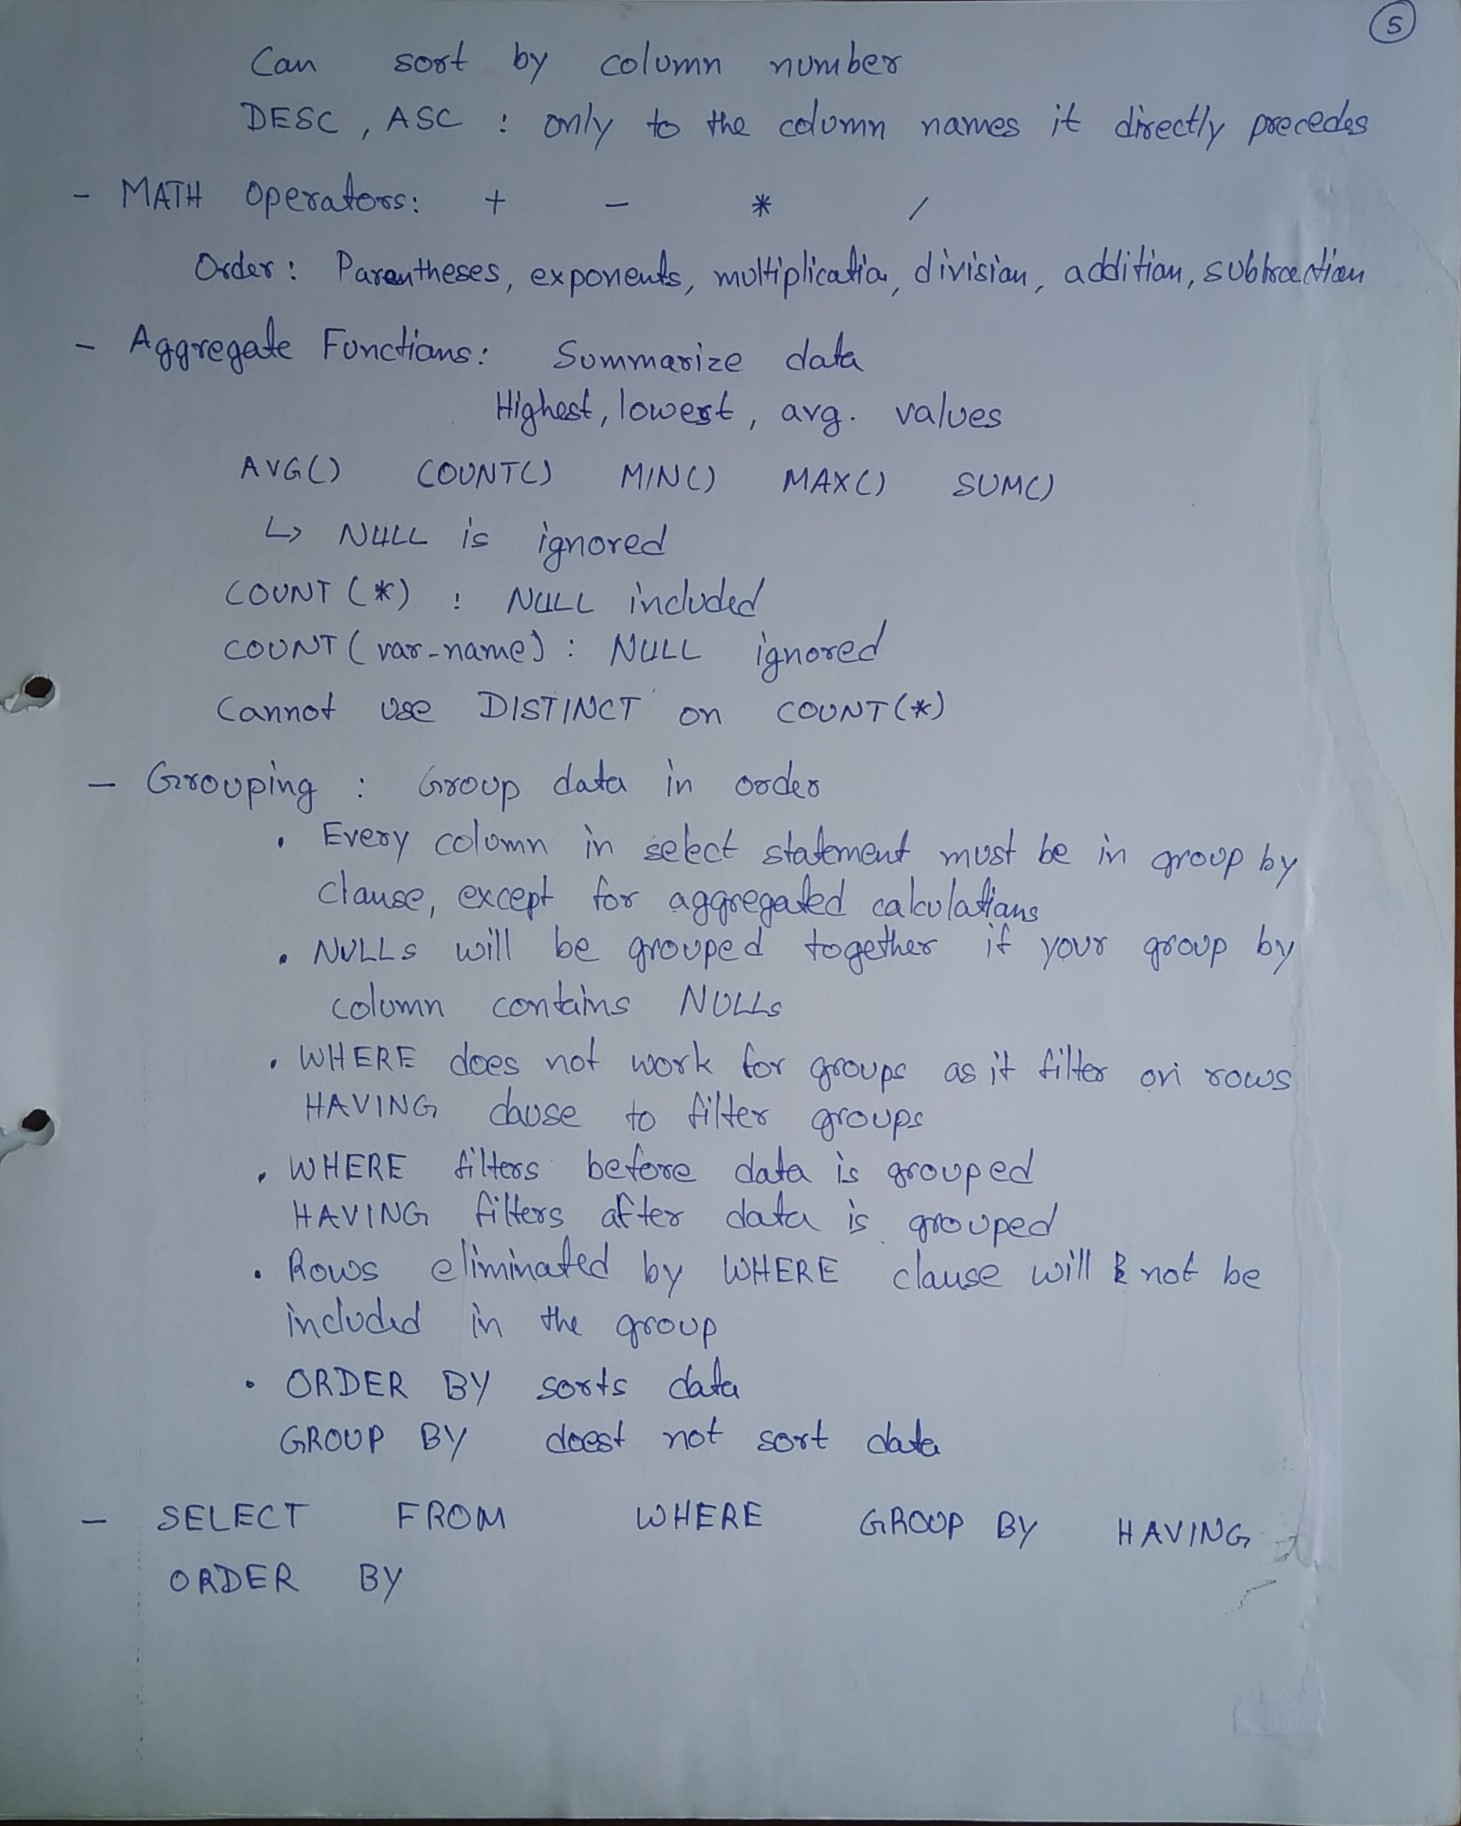 5
Can sort by column number
DESC, ASC : only to the column names it directly precedes
- MATH Operators: + - * /
Order: Parentheses, exponents, multiplicatio, division, addition, subtraction
- Aggregate Functions: Summarize data
Highest, lowest, avg. values
AVG() COUNT() MIN() MAX() SUM()
↳ NULL is ignored
COUNT(*) : NULL included
COUNT(var-name) : NULL ignored
Cannot use DISTINCT on COUNT(*)
- Grouping : Group data in order
• Every column in select statement must be in group by
clause, except for aggregated calculations
• NULLs will be grouped together if your group by
column contains NULLs
• WHERE does not work for groups as it filter on rows
HAVING clause to filter groups
• WHERE filters before data is grouped
HAVING filters after data is grouped
• Rows eliminated by WHERE clause will not be
included in the group
• ORDER BY sorts data
GROUP BY doest not sort data
- SELECT FROM WHERE GROUP BY HAVING
ORDER BY